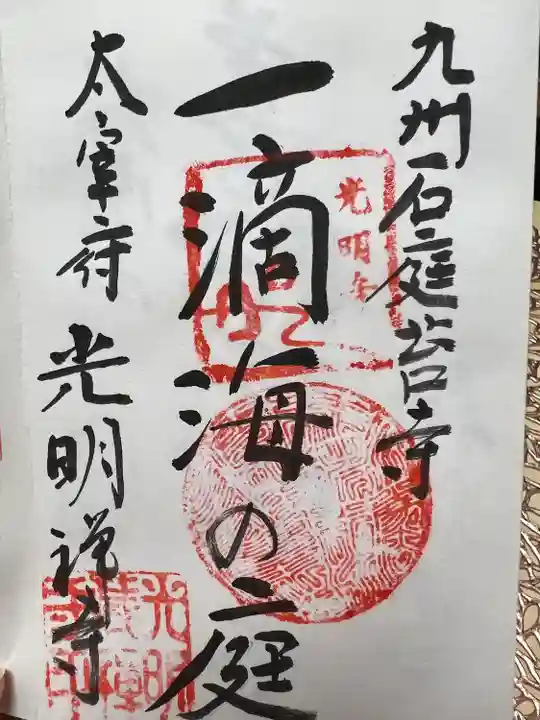 九州石庭苔寺
一滴海の庭
太宰府 光明禅寺
光明寺